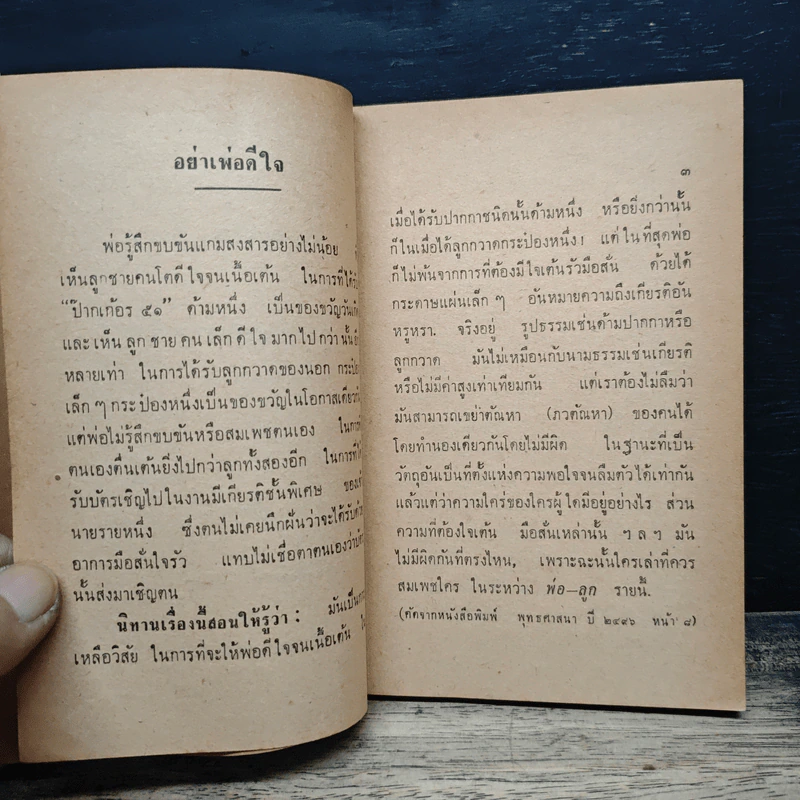 อย่าเพ่อดีใจ
พ่อรู้สึกขบขันแกมสงสารอย่างไม่น้อย
เห็นลูกชายคนโตดีใจจนเนื้อเต้น ในการที่ได้รับ
“ป๊ากเก้อร ๕๑” ด้ามหนึ่ง เป็นของขวัญวันเกิด
และเห็น ลูก ชาย คน เล็ก ดี ใจ มากไป กว่า นั้น
หลายเท่า ในการได้รับลูกกวาดของนอก กระป๋อง
เล็ก ๆ กระป๋องหนึ่งเป็นของขวัญในโอกาสเดียวกัน
แต่พ่อไม่รู้สึกขบขันหรือสมเพชตนเอง ในการที่
ตนเองตื่นเต้นยิ่งไปกว่าลูกทั้งสองอีก ในการที่ได้
รับบัตรเชิญไปในงานมีเกียรติชั้นพิเศษ ของ
นายรายหนึ่ง ซึ่งตนไม่เคยนึกฝันว่าจะได้รับด้วย
อาการมือสั่นใจรัว แทบไม่เชื่อตาตนเองว่าบัตร
นั้นส่งมาเชิญตน
นิทานเรื่องนี้สอนให้รู้ว่า : มันเป็นการ
เหลือวิสัย ในการที่จะให้พ่อดีใจจนเนื้อเต้น
๓
เมื่อได้รับปากกาชนิดนั้นด้ามหนึ่ง หรือยิ่งกว่านั้น
ก็ในเมื่อได้ลูกกวาดกระป๋องหนึ่ง! แต่ ใน ที่สุดพ่อ
ก็ไม่พ้นจากการที่ต้องมีใจเต้นรัวมือสั่น ด้วยได้
กระดาษแผ่นเล็ก ๆ อันหมายความถึงเกียรติอัน
หรูหรา. จริงอยู่ รูปธรรมเช่นด้ามปากกาหรือ
ลูกกวาด มันไม่เหมือนกับนามธรรมเช่นเกียรติ
หรือไม่มีค่าสูงเท่าเทียมกัน แต่เราต้องไม่ลืมว่า
มันสามารถเขย่าตัณหา (ภวตัณหา) ของคนได้
โดยทำนองเดียวกันโดยไม่มีผิด ในฐานะที่เป็น
วัตถุอันเป็นที่ตั้งแห่งความพอใจจนลืมตัวได้เท่ากัน
แล้วแต่ว่าความใคร่ของใครผู้ใดมีอยู่อย่างไร ส่วน
ความที่ต้องใจเต้น มือสั่นเหล่านั้น ฯ ล ฯ มัน
ไม่มีผิดกันที่ตรงไหน, เพราะฉะนั้นใครเล่าที่ควร
สมเพชใคร ในระหว่าง พ่อ–ลูก รายนี้.
(คัดจากหนังสือพิมพ์ พุทธศาสนา ปี ๒๔๙๖ หน้า ๘)